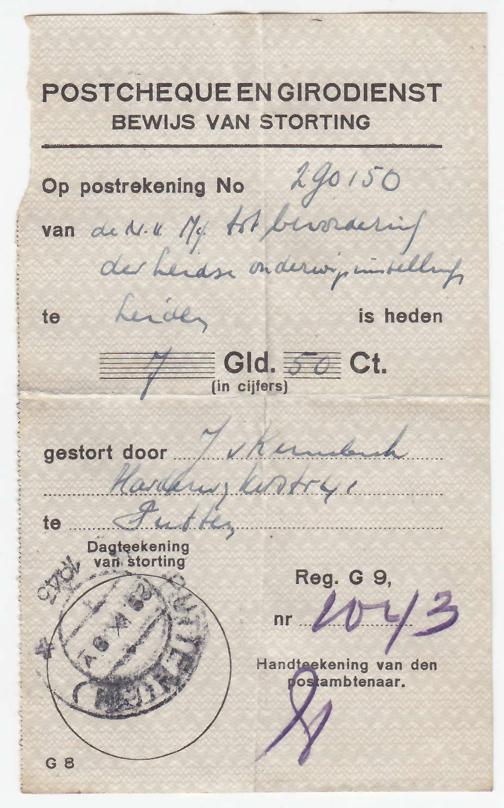 POSTCHEQUE EN GIRODIENST
BEWIJS VAN STORTING
Op postrekening No 290150
van de N.V. My tot bevordering
der Leidse onderwijsinstellings
te Leiden is heden
7 Gld. 50 Ct.
(in cijfers)
gestort door J v
te Putten
Dagteekening
van storting
Reg. G 9,
nr 1043
Handteekening van den
postambtenaar.
1943
PUTTEN
G 8